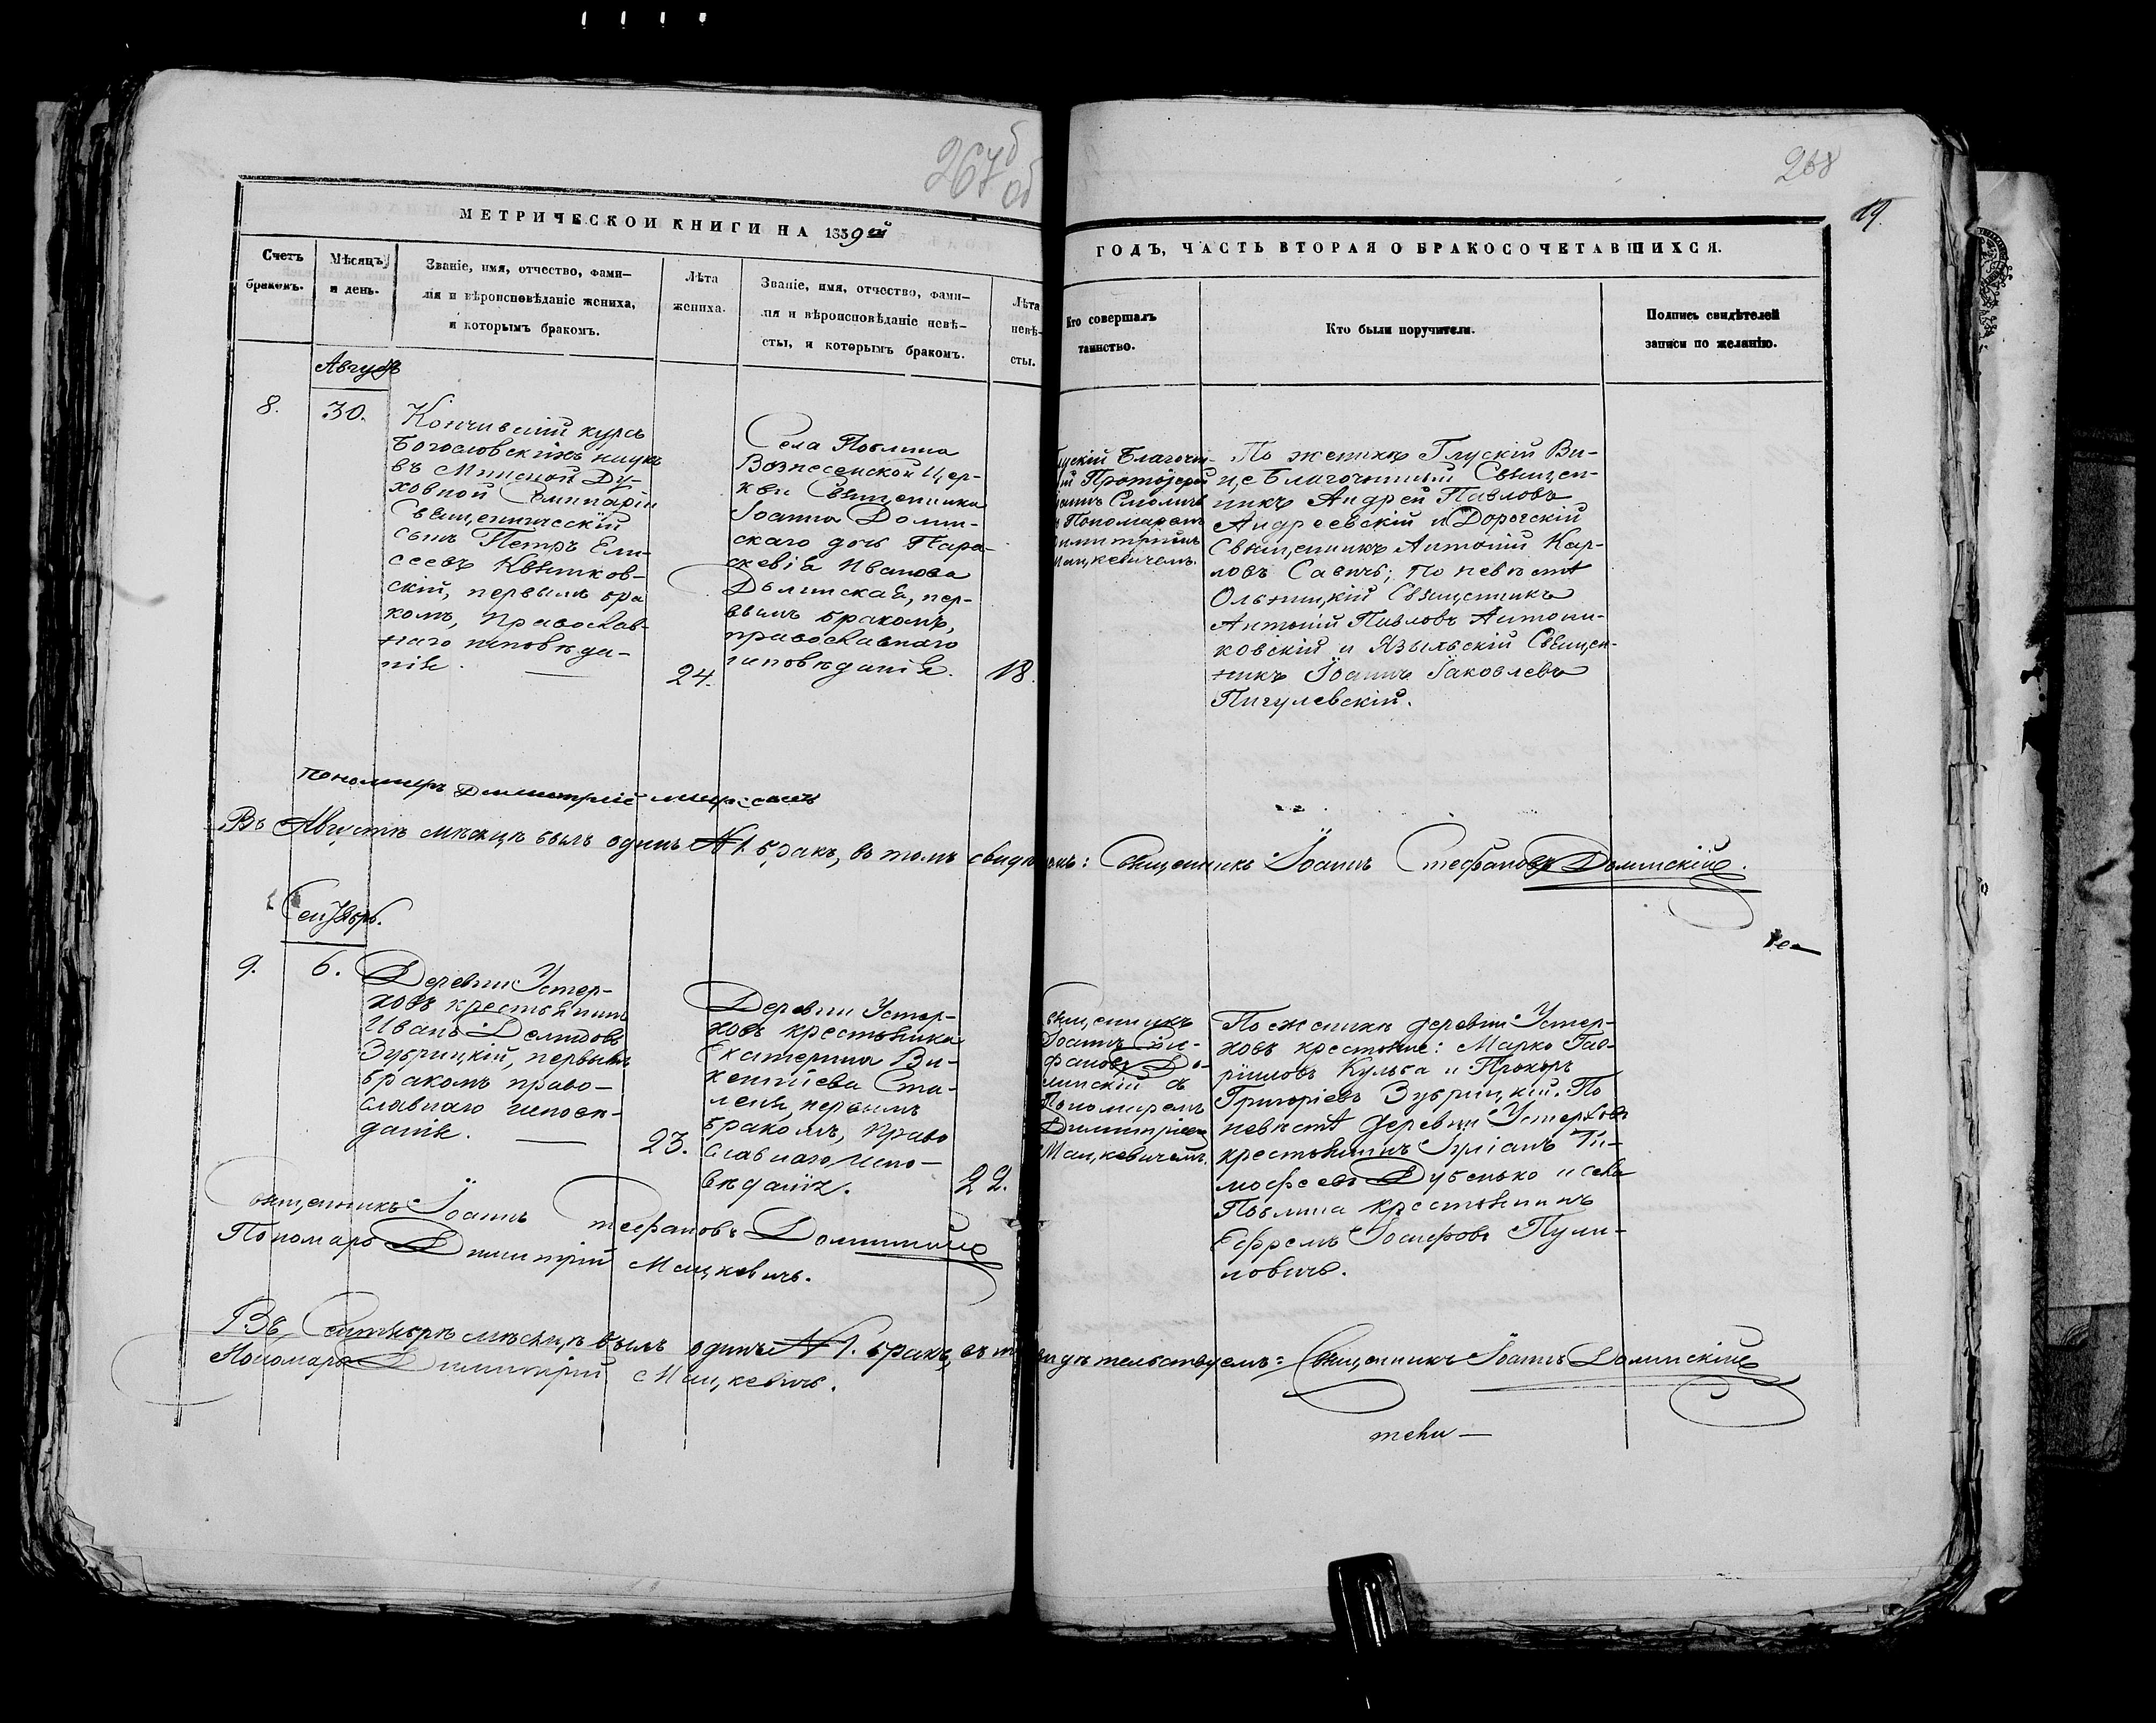 267б об
268
19.
МЕТРИЧЕСКОЙ КНИГИ НА 1859ый
ГОДЪ, ЧАСТЬ ВТОРАЯ О БРАКОСОЧЕТАВШИХСЯ.
Счетъ браковъ.
Мѣсяцъ и день.
Званіе, имя, отчество, фами-
лія и вѣроисповѣданіе жениха,
и которымъ бракомъ.
Лѣта
жениха.
Званіе, имя, отчество, фами-
лія и вѣроисповѣданіе невѣ-
сты, и которымъ бракомъ.
Лѣта
невѣ-
сты.
Кто совершалъ
таинство.
Кто были поручители.
Подпись свидѣтелей
записи по желанію.
Августъ
8.
30.
Кончившій курсъ
Богословскихъ наукъ
въ Минской Ду-
ховной Семинаріи
Священническій
сынъ Петръ Ели-
сеевъ Квятков-
скій, первымъ бра
комъ, православ-
наго исповѣда-
нія.
24.
Села
Вознесенской Цер-
кви Священника
Іоанна Долин-
скаго дочь Пара-
скевія Иванова
Долинская, пер-
вымъ бракомъ,
православнаго
исповѣданія.
18.
Глускій Благочин-
ый Протоіерей
Іоаннъ Смоличъ
съ Пономаремъ
Димитріемъ
Мацкевичемъ.
По женихѣ Глускій Ви-
це Благочинный Священ-
никъ Андрей Павловъ
Андреевскій и Дорогскій
Священникъ Антоній Кар-
ловъ Савичъ; По невѣстѣ
Ольницкій Священникъ
Антоній Павловъ Антони-
ковскій и Языльскій Священ-
никъ Іоаннъ Іаковлевъ
Пигулевскій.
Пономарь Димитрій Мацкевичъ
Въ Августѣ мѣсяцѣ былъ одинъ № 1. бракъ, въ томъ свидѣ емъ: Священникъ Іоаннъ Стефановъ Долинскій.
Сентябрь.
9.
6.
Деревни Устер-
ховъ крестьянинъ
Иванъ Демидовъ
Зубрицкій, первымъ
бракомъ право-
славнаго исповѣ-
данія.
23.
Деревни Устер-
ховъ крестьянка
Екатерина Ви-
кентіева Ста-
леня, первымъ
бракомъ, право
славнаго испо-
вѣданія.
22.
Священникъ
Іоаннъ Сте-
фановъ До-
линскій съ
Пономаремъ
Димитріемъ
Мацкевичемъ.
По женихѣ деревни Устер-
ховъ крестьяне: Марко Гав-
рииловъ Кульба и Прокоръ
Григоріевъ Зубрицкій. По
невѣстѣ деревни Устерховъ
крестьянинъ Іуліанъ Ти-
мофеевъ Дубенько и села
крестьянинъ
Ефремъ Іосифовъ Пули-
ловичъ.
Священникъ Іоаннъ Стефановъ Долинскій
Пономарь Димитрій Мацкевичъ.
Въ Сентябрѣ мѣсяцѣ былъ одинъ № 1. бракъ, въ т видѣтельствуемъ: Священникъ Іоаннъ Долинскій
Пономарь Димитрій Мацкевичъ.